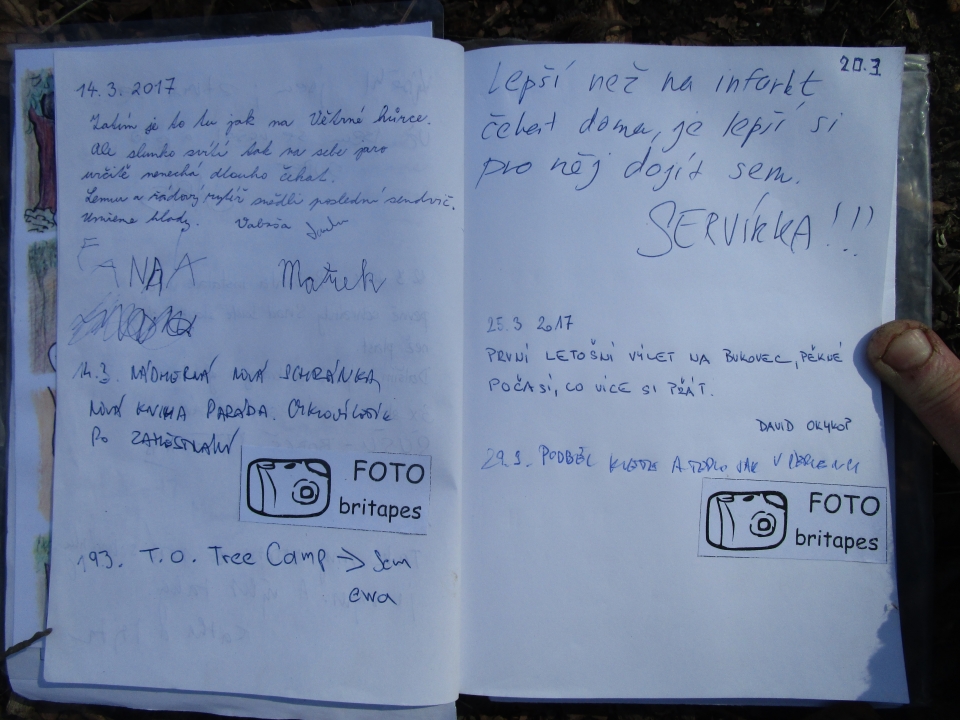 14. 3. 2017
Zatím je to tu jak na Větrné hůrce.
Ale slunko svítí tak na sebe jaro
určitě nenechá dlouho čekat.
Lemu a řádový rytíř snědli poslední sendvič.
Umřeme hlady.
FANAA Mařiek
14.3. NÁDHERNÁ NOVÁ SCHRÁNKA,
NOVÁ KNIHA PARÁDA.
PO ZAMĚSTNÁNÍ
FOTO
britapes
193. T.O. Tree Camp → Sem
ewa
20.3
Lepší než na infarkt
čekat doma, je lepší si
pro něj dojít sem.
SERVÍKKA!!!
25.3 2017
PRVNÍ LETOŠNÍ VÝLET NA BUKOVEC, PĚKNÉ
POČASÍ, CO VÍCE SI PŘÁT.
DAVID
29.3. PODBĚL KVETE A TEPLO JAK V
FOTO
britapes